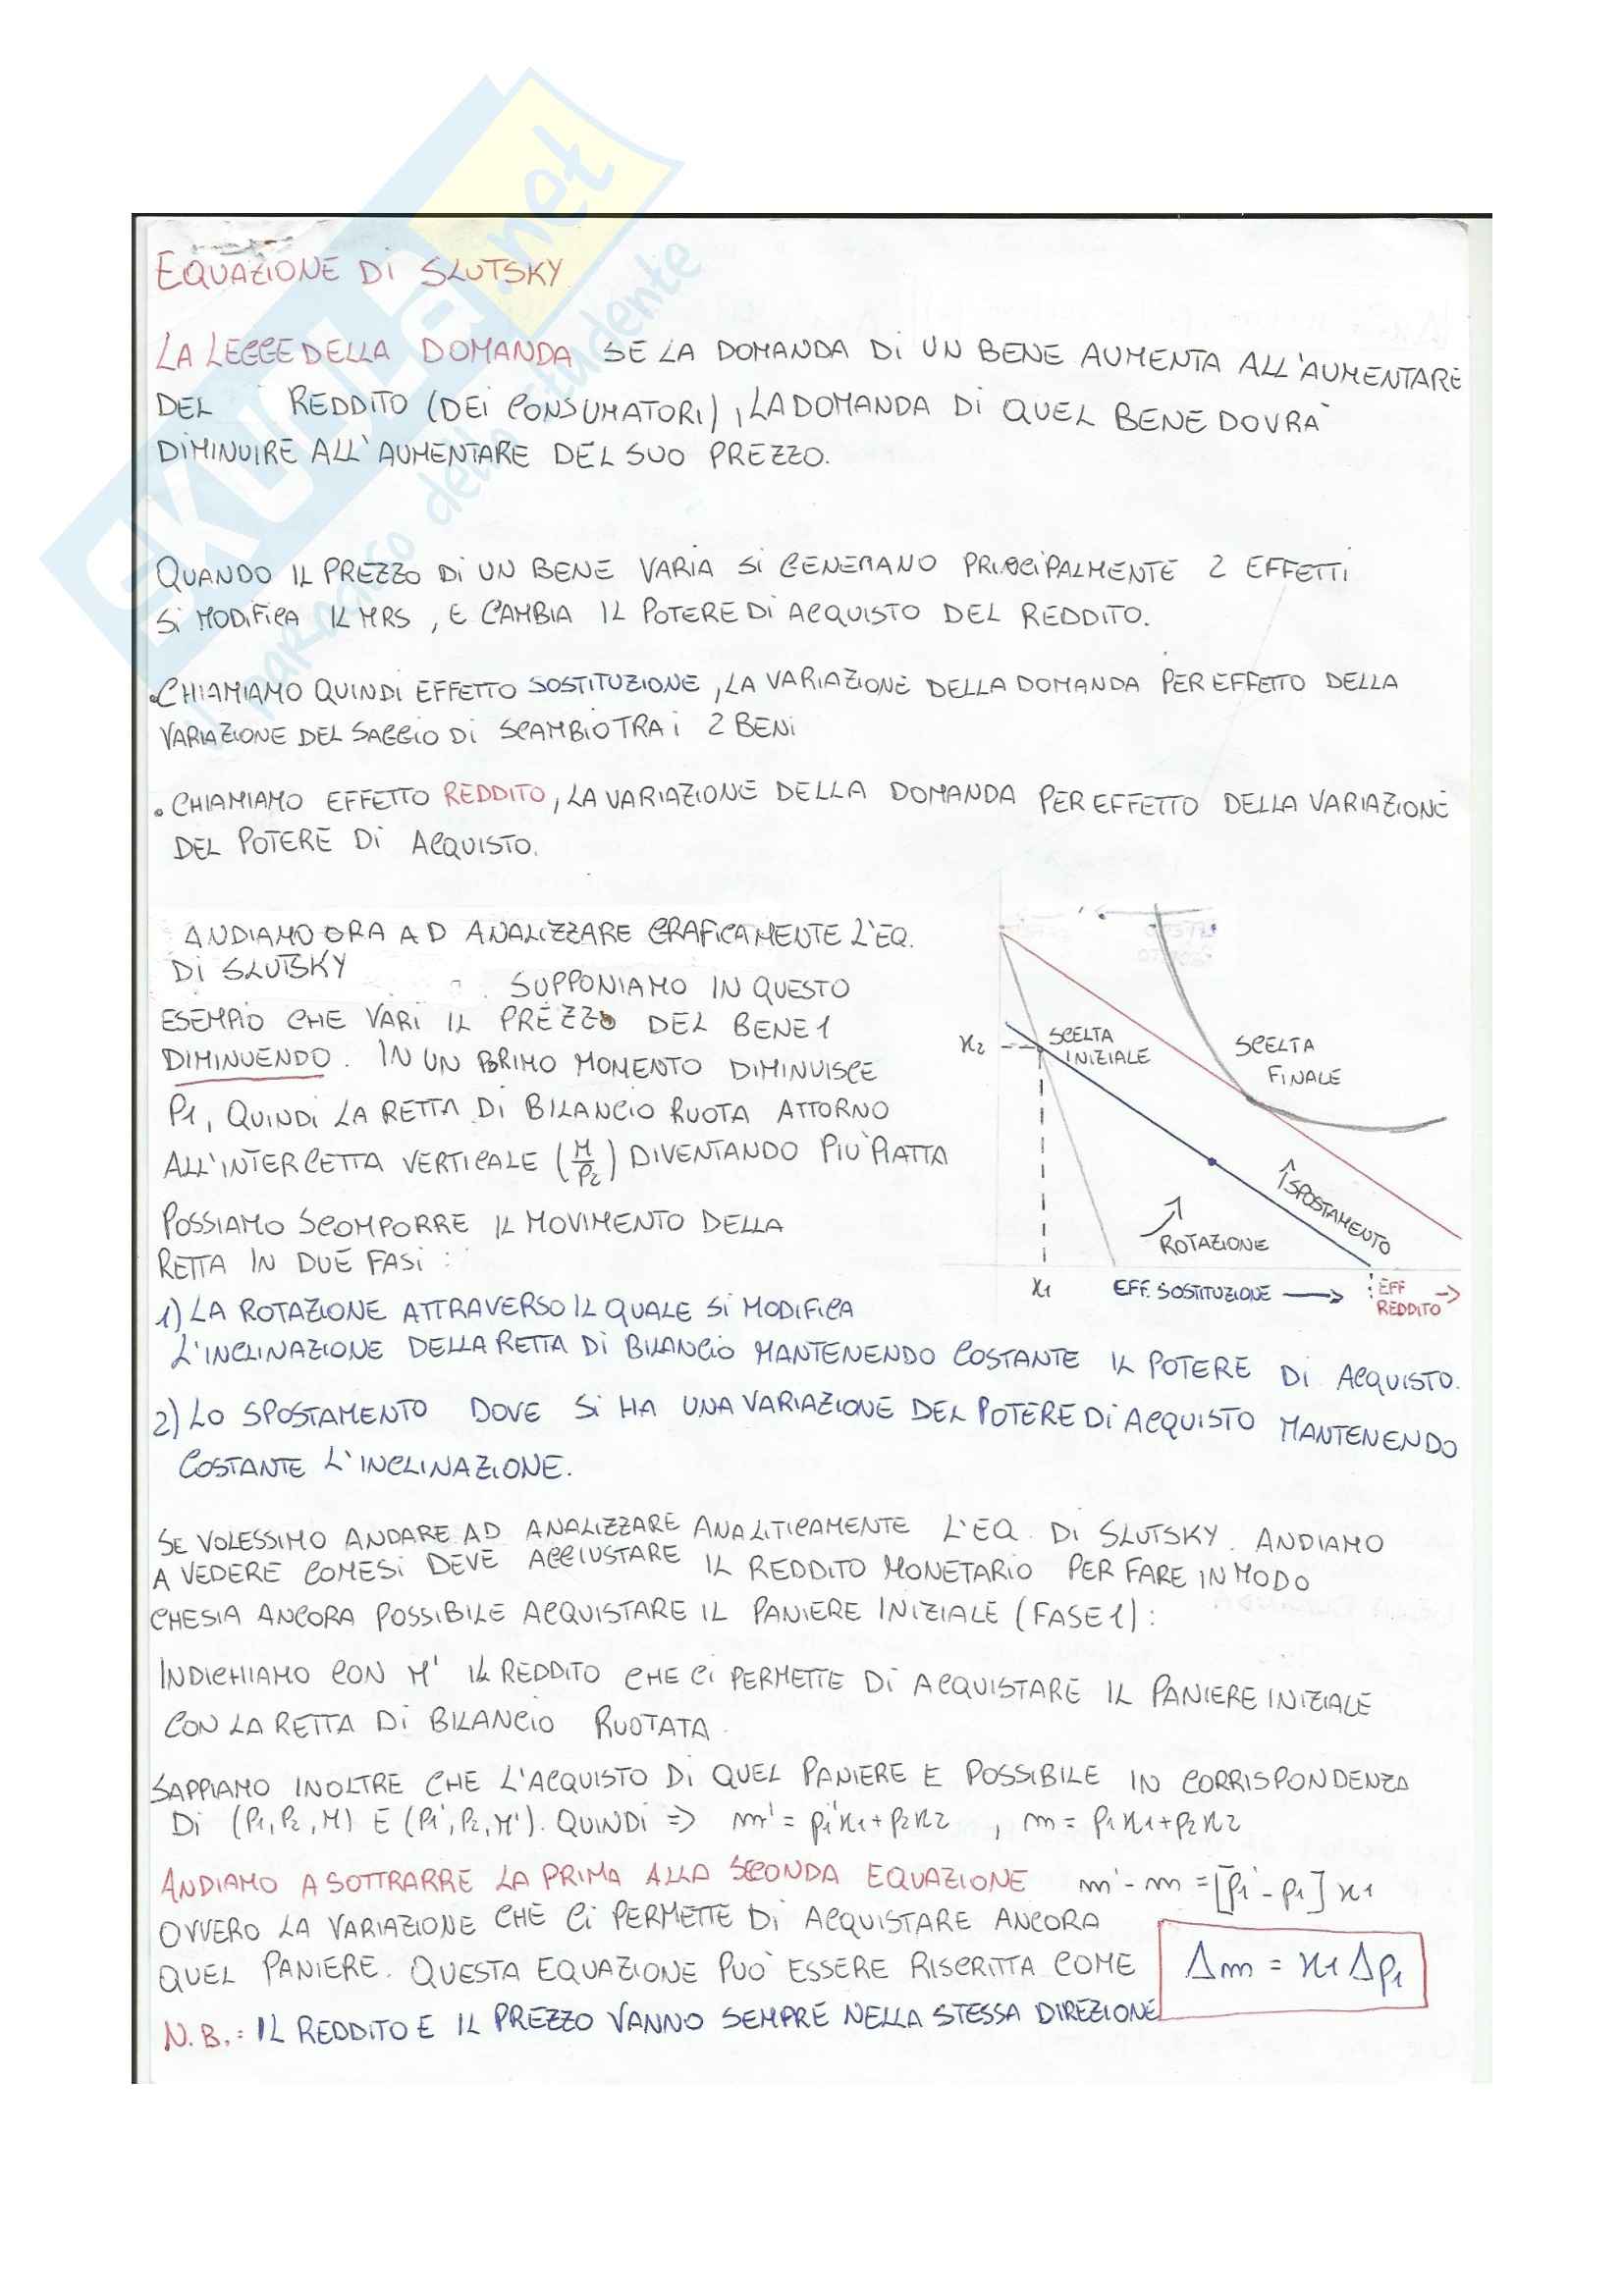 SKUOLA.net
il paradiso dello studente
EQUAZIONE DI SLUTSKY
LA LEGGE DELLA DOMANDA SE LA DOMANDA DI UN BENE AUMENTA ALL'AUMENTARE
DEL REDDITO (DEI CONSUMATORI), LA DOMANDA DI QUEL BENE DOVRA'
DIMINUIRE ALL'AUMENTARE DEL SUO PREZZO.
QUANDO IL PREZZO DI UN BENE VARIA SI GENERANO PRINCIPALMENTE 2 EFFETTI
SI MODIFICA IL MRS, E CAMBIA IL POTERE DI ACQUISTO DEL REDDITO.
• CHIAMIAMO QUINDI EFFETTO SOSTITUZIONE, LA VARIAZIONE DELLA DOMANDA PER EFFETTO DELLA
VARIAZIONE DEL SAGGIO DI SCAMBIO TRA I 2 BENI
• CHIAMIAMO EFFETTO REDDITO, LA VARIAZIONE DELLA DOMANDA PER EFFETTO DELLA VARIAZIONE
DEL POTERE DI ACQUISTO.
ANDIAMO ORA AD ANALIZZARE GRAFICAMENTE L'EQ.
DI SLUTSKY
SUPPONIAMO IN QUESTO
ESEMPIO CHE VARI IL PREZZO DEL BENE 1
DIMINUENDO. IN UN PRIMO MOMENTO DIMINUISCE
P1, QUINDI LA RETTA DI BILANCIO RUOTA ATTORNO
ALL'INTERCETTA VERTICALE (M/P2) DIVENTANDO PIU' PIATTA
POSSIAMO SCOMPORRE IL MOVIMENTO DELLA
RETTA IN DUE FASI:
x2
SCELTA
INIZIALE
SCELTA
FINALE
SPOSTAMENTO
ROTAZIONE
x1
EFF. SOSTITUZIONE →
EFF →
REDDITO
1) LA ROTAZIONE ATTRAVERSO IL QUALE SI MODIFICA
L'INCLINAZIONE DELLA RETTA DI BILANCIO MANTENENDO COSTANTE IL POTERE DI ACQUISTO.
2) LO SPOSTAMENTO DOVE SI HA UNA VARIAZIONE DEL POTERE DI ACQUISTO MANTENENDO
COSTANTE L'INCLINAZIONE.
SE VOLESSIMO ANDARE AD ANALIZZARE ANALITICAMENTE L'EQ. DI SLUTSKY. ANDIAMO
A VEDERE COME SI DEVE AGGIUSTARE IL REDDITO MONETARIO PER FARE IN MODO
CHE SIA ANCORA POSSIBILE ACQUISTARE IL PANIERE INIZIALE (FASE 1):
INDICHIAMO CON M' IL REDDITO CHE CI PERMETTE DI ACQUISTARE IL PANIERE INIZIALE
CON LA RETTA DI BILANCIO RUOTATA.
SAPPIAMO INOLTRE CHE L'ACQUISTO DI QUEL PANIERE E POSSIBILE IN CORRISPONDENZA
DI (P1, P2, M) E (P1', P2, M'). QUINDI => m' = p1'x1 + p2x2 , m = p1x1 + p2x2
ANDIAMO A SOTTRARRE LA PRIMA ALLA SECONDA EQUAZIONE m' - m = [p1' - p1] x1
OVVERO LA VARIAZIONE CHE CI PERMETTE DI ACQUISTARE ANCORA
QUEL PANIERE. QUESTA EQUAZIONE PUO' ESSERE RISCRITTA COME Δm = x1 Δp1
N.B.: IL REDDITO E IL PREZZO VANNO SEMPRE NELLA STESSA DIREZIONE